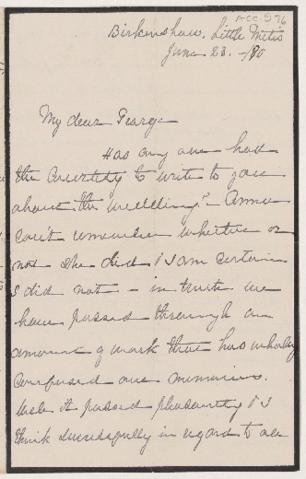 ACC 576
Birkenshaw, Little Metis
June 23 -/80
My dear George
Has any one had
the charity to write to you
about the wedding? Anna
can't remember whether or
not she did & I am certain
I did not - in truth we
have passed through an
amount of work that has wholly
confused our memories.
Well it passed pleasantly & I
think successfully in regard to all